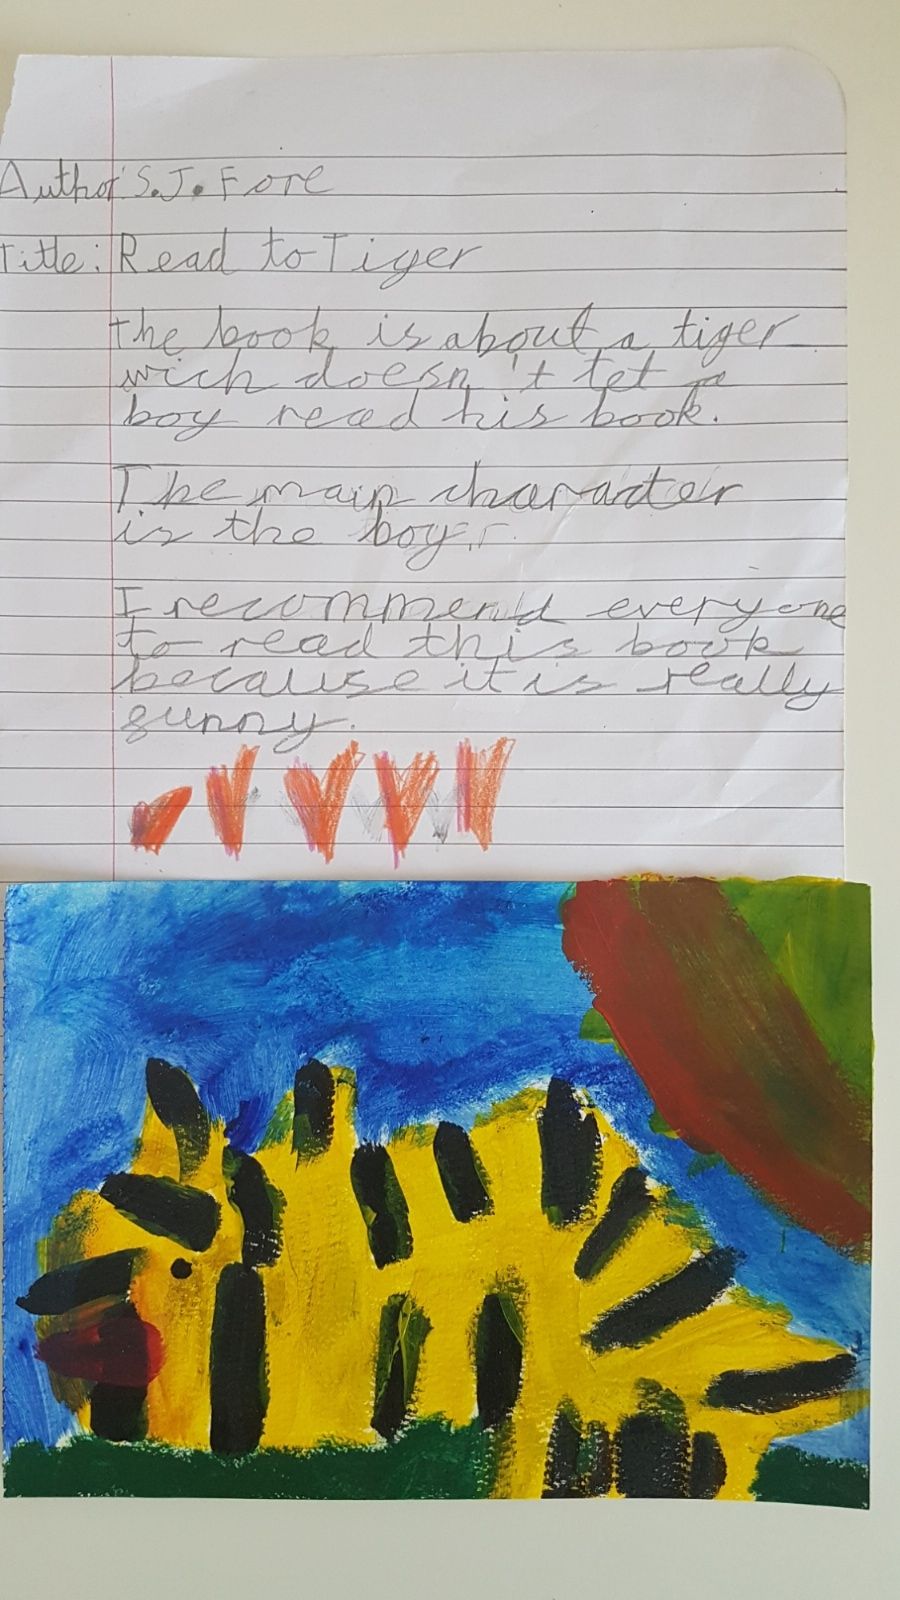 Author S.J. Fore
Title: Read to Tiger
the book is about a tiger
wich doesn't tet a
boy read his book.
The main charakter
is the boy.
I recommend everyone
to read this book
because it is really
gunny.